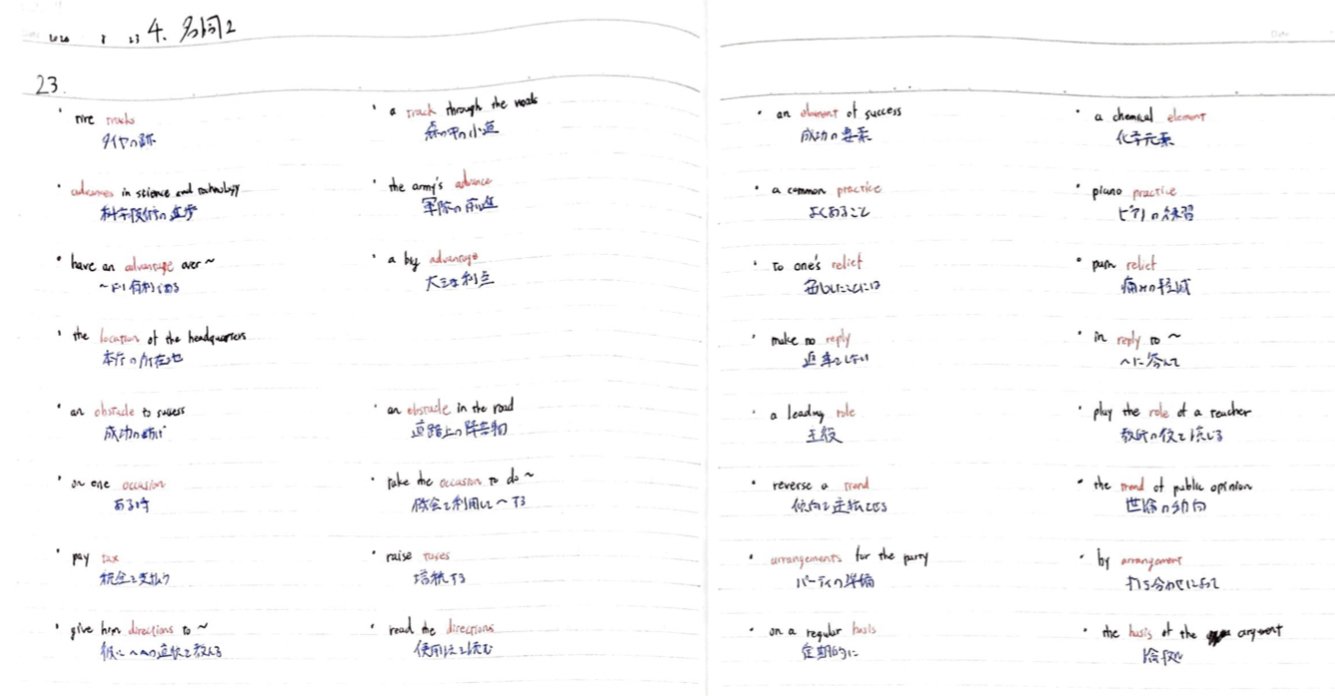 2020 8 23 4. 名詞2
23.
・tire tracks
タイヤの跡
・a track through the woods
森の中の小道
・advances in science and technology
科学技術の進歩
・the army's advance
軍隊の前進
・have an advantage over ~
~より有利である
・a big advantage
大きな利点
・the location of the headquarters
本庁の所在地
・an obstacle to success
成功の妨げ
・an obstacle in the road
道路上の障害物
・on one occasion
ある時
・take the occasion to do ~
機会を利用して~する
・pay tax
税金を支払う
・raise taxes
増税する
・give him directions to ~
彼に~への道順を教える
・read the directions
使用法を読む
Date
・an element of success
成功の要素
・a chemical element
化学元素
・a common practice
よくあること
・piano practice
ピアノの練習
・to one's relief
安心したことには
・pain relief
痛みの軽減
・make no reply
返事をしない
・in reply to ~
~に答えて
・a leading role
主役
・play the role of a teacher
教師の役を演じる
・reverse a trend
傾向を逆転させる
・the trend of public opinion
世論の動向
・arrangements for the party
パーティの準備
・by arrangement
打ち合わせによって
・on a regular basis
定期的に
・the basis of the argument
論拠